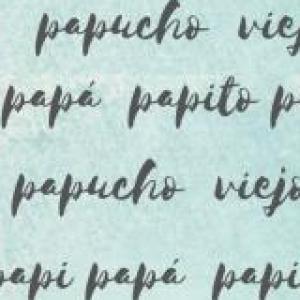 papucho viej
papá papito p
papucho viejo
papi papá papi